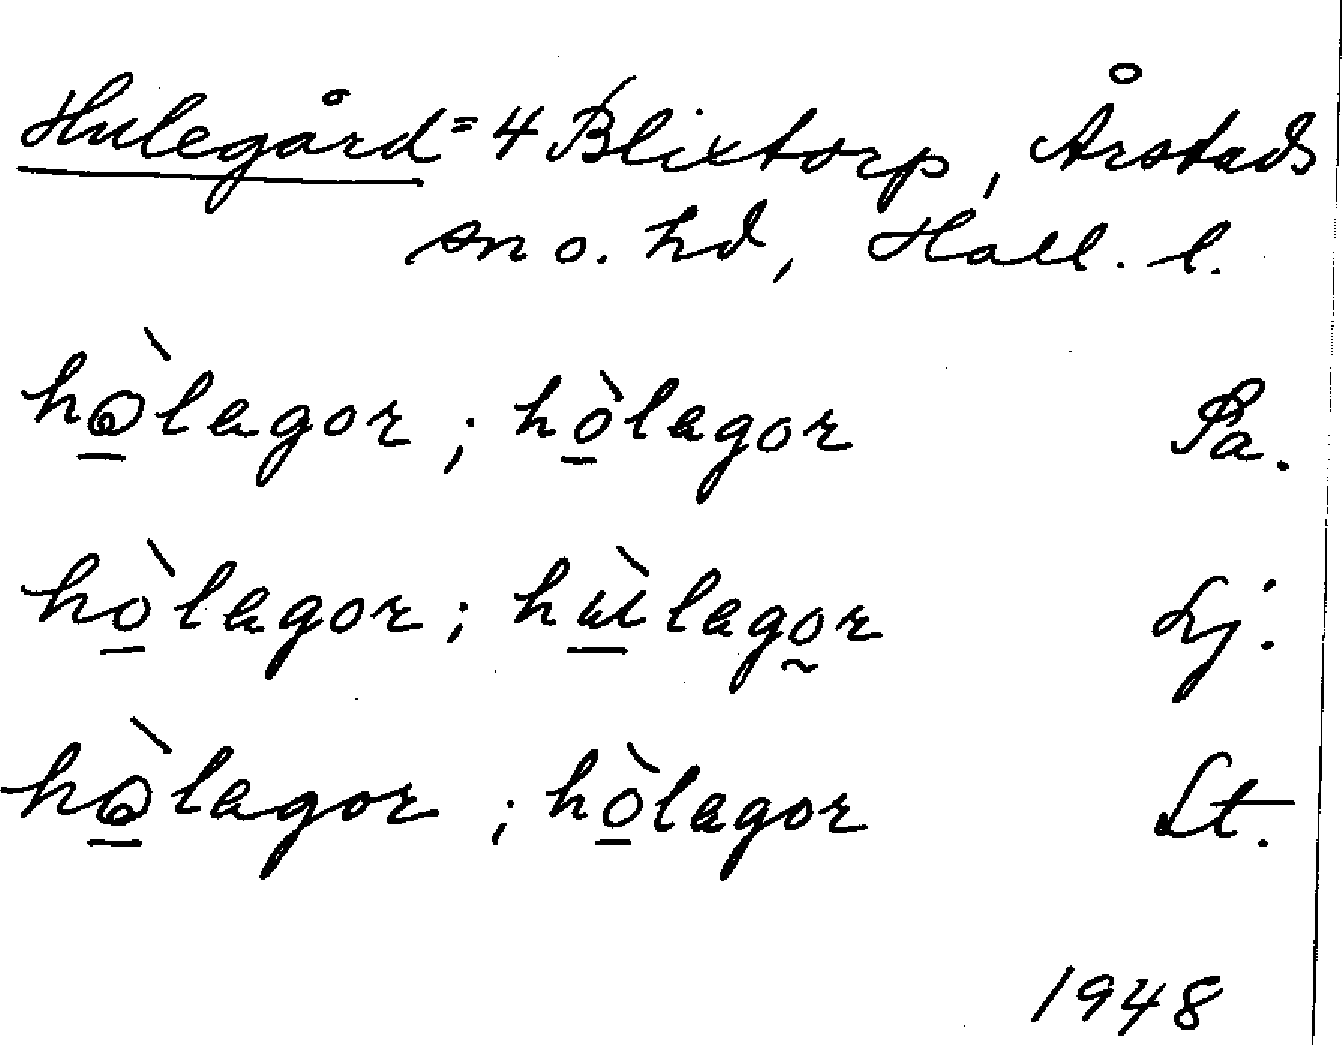 Hulegård = 4 Blixtorp, Årstads
sn o. hd, Hall. l.
hò̱lagor ; hò̱lagor Pa.
hò̱lagor ; hù̱lago̰r Lj.
hò̱lagor ; hò̱lagor St.
1948